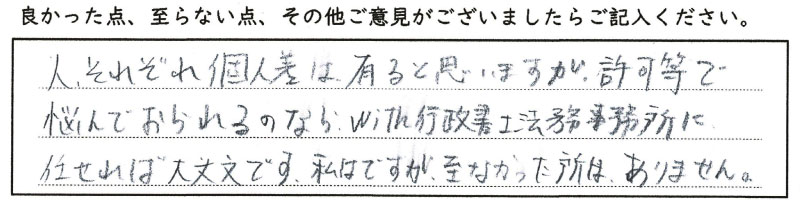 良かった点、至らない点、その他ご意見がございましたらご記入ください。
人、それぞれ個人差は、有ると思いますが、許可等で
悩んでおられるのなら、with行政書士法務事務所に
任せれば大丈文です、私はですが、至なかった所は、ありません。